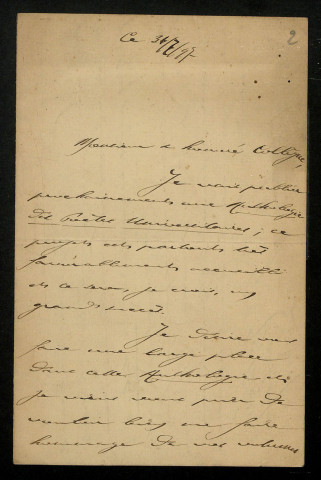 2
Ce 31/7/97
Monsieur & honoré Collègue,
Je vais publier
prochainement une Anthologie
des Poètes Universitaires ; ce
projet est partout très
favorablement accueilli
et ce sera, je crois, un
grand succès.
Je désire vous
faire une large place
dans cette Anthologie et
je viens vous prier de
vouloir bien me faire
hommage de vos volumes